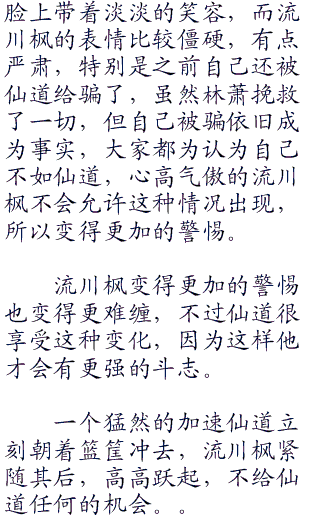 脸上带着淡淡的笑容，而流
川枫的表情比较僵硬，有点
严肃，特别是之前自己还被
仙道给骗了，虽然林萧挽救
了一切，但自己被骗依旧成
为事实，大家都为认为自己
不如仙道，心高气傲的流川
枫不会允许这种情况出现，
所以变得更加的警惕。
流川枫变得更加的警惕
也变得更难缠，不过仙道很
享受这种变化，因为这样他
才会有更强的斗志。
一个猛然的加速仙道立
刻朝着篮筐冲去，流川枫紧
随其后，高高跃起，不给仙
道任何的机会。。